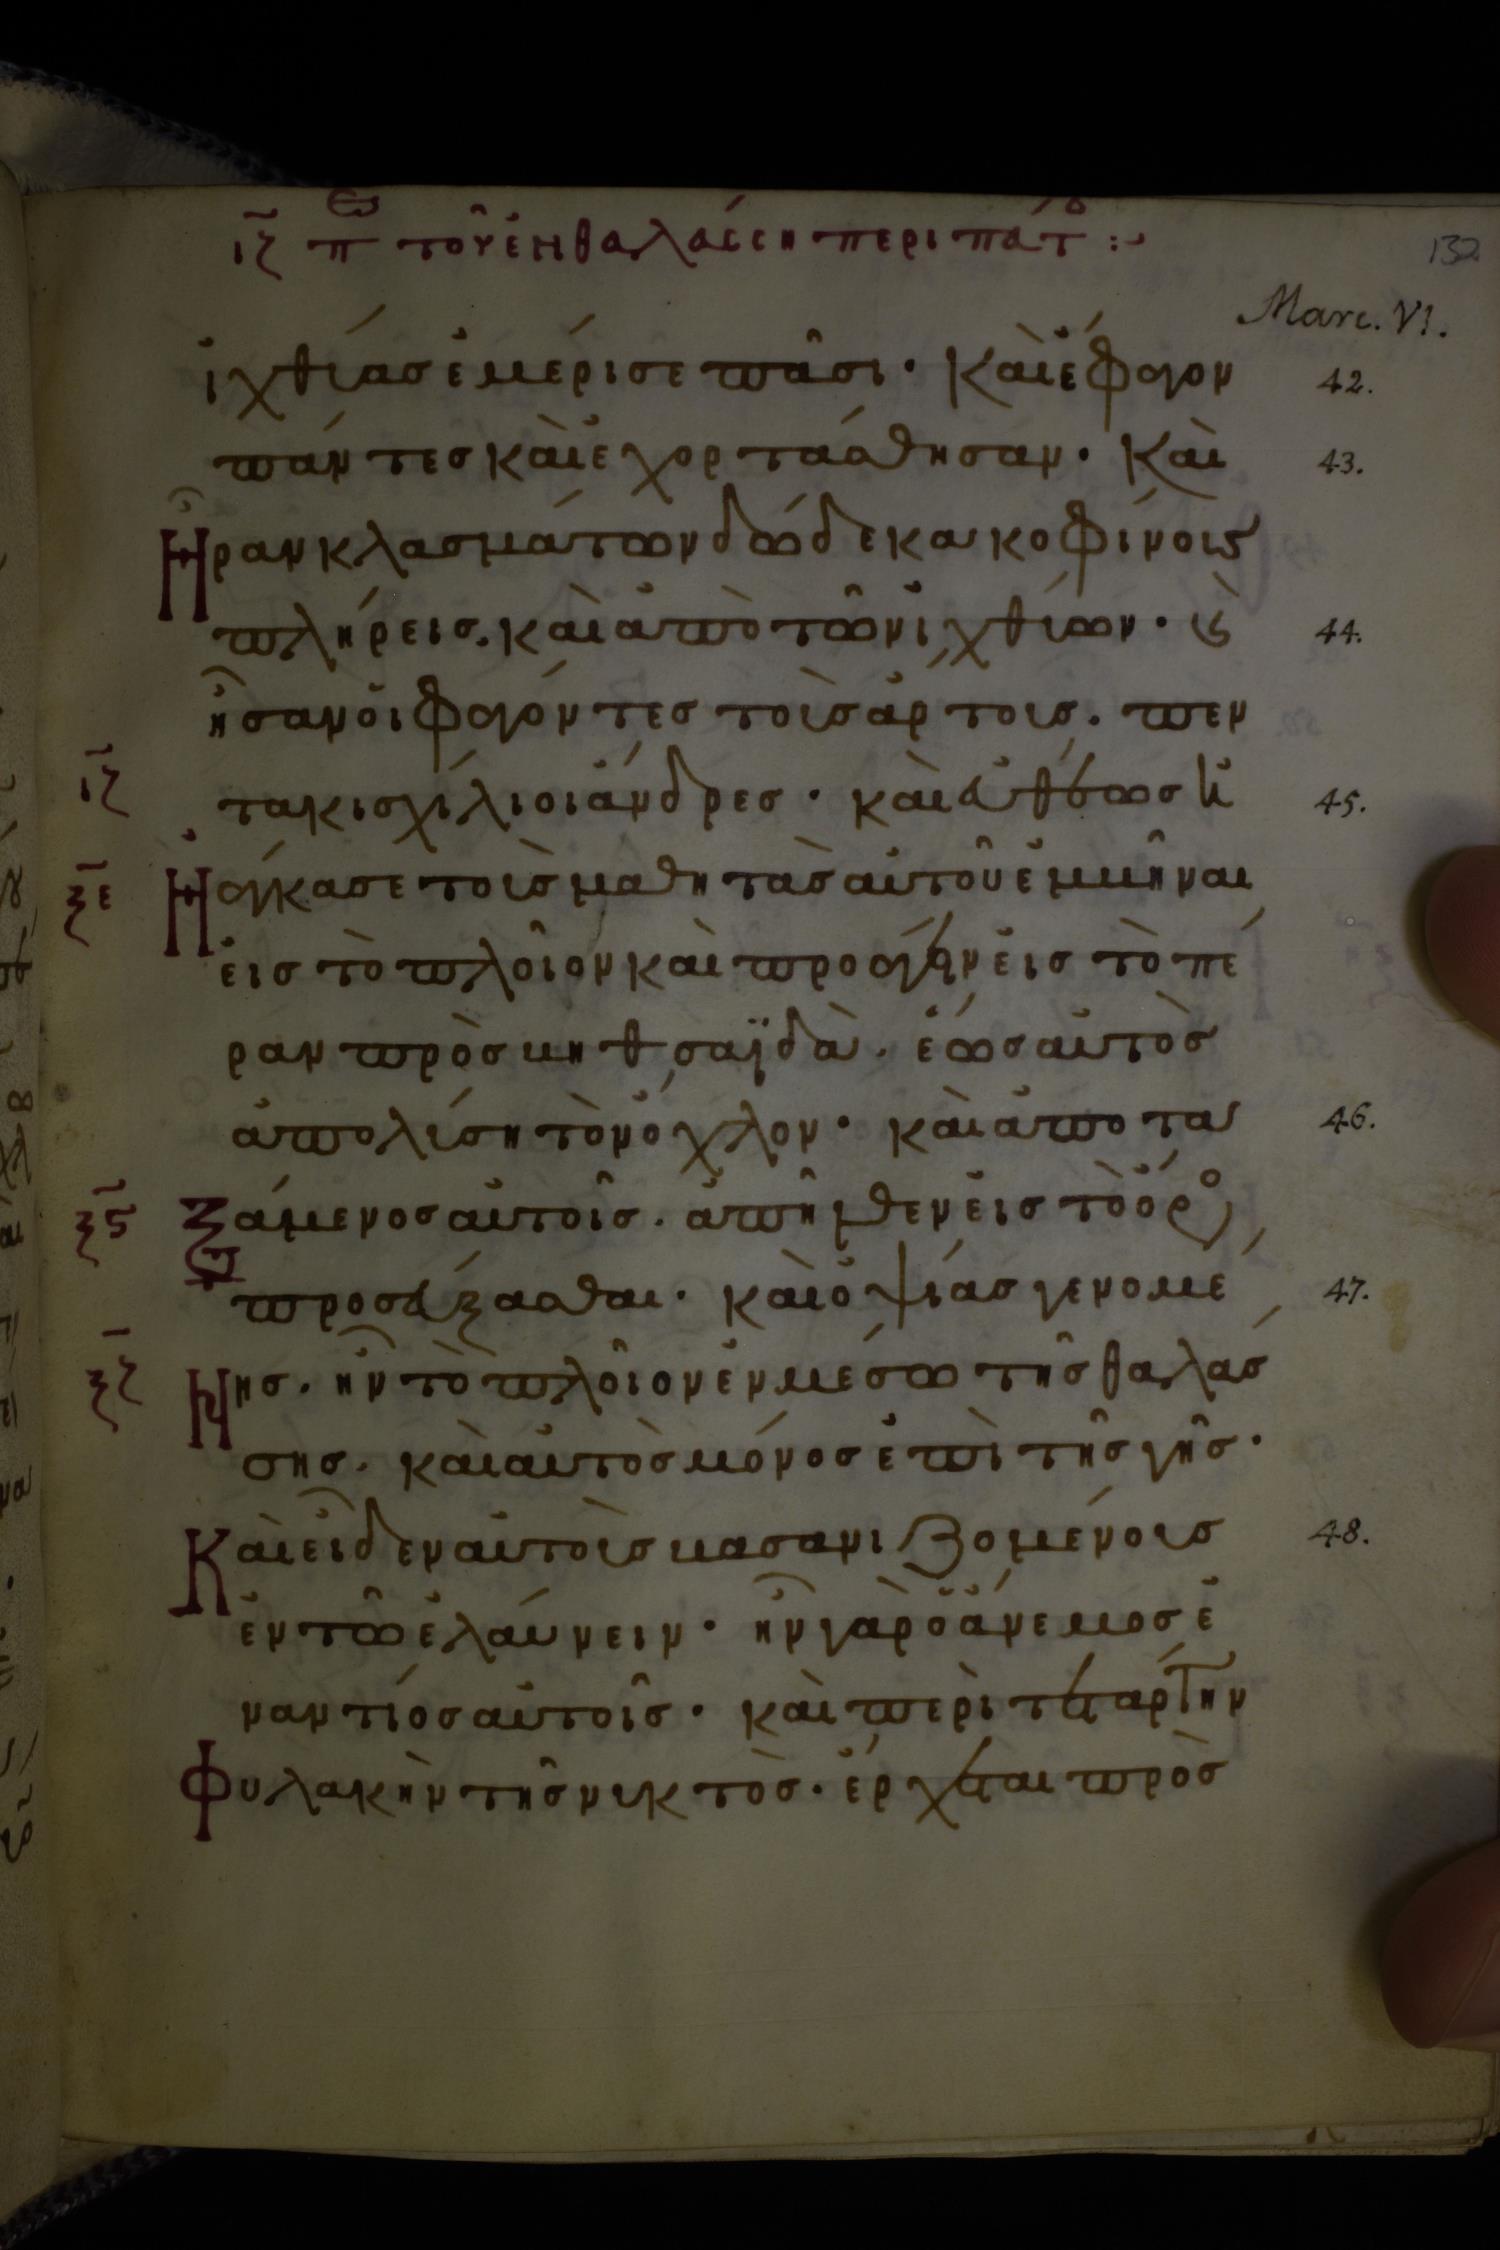 ιζ π̅ε τοῦ ἐν θαλάσση περιπάτου :~
132
Marc. VI.
ἰχθύας ἐμέρισε πᾶσι· Καὶ ἔφαγον 42.
πάντες καὶ ἐχορτάσθησαν· Καὶ 43.
Ἦραν κλασμάτων δώδεκα κοφίνους
πλήρεις. καὶ ἀπὸ τῶν ἰχθύων· ϗ 44.
ἦσαν οἱ φαγόντες τοὺς ἄρτους. πεν
ιζ τακισχίλιοι ἄνδρες · καὶ εὐθέως ἠ 45.
ξε Ἠνάγκασε τοὺς μαθητὰς αὐτοῦ ἐμβῆναι
εἰς τὸ πλοῖον καὶ προάγειν εἰς τὸ πέ
ραν πρὸς βηθσαϊδὰ. ἕως αὐτὸς
ἀπολύση τὸν ὄχλον· καὶ ἀποτα 46.
ξϛ Ξάμενος αὐτοῖς. ἀπῆλθεν εἰς τὸ ὄρος
προσεύξασθαι· καὶ ὀψίας γενομέ 47.
ξζ Νης. ἦν τὸ πλοῖον ἐν μέσω τῆς θαλάσ
σης. καὶ αὐτὸς μόνος ἐπὶ τῆς γῆς·
Καὶ εἶδεν αὐτοὺς βασανιζομένους 48.
ἐν τῶ ἐλαύνειν· ἦν γὰρ ὁ ἄνεμος ἐ
ναντίος αὐτοῖς· καὶ περὶ τετάρτην
Φυλακὴν τῆς νυκτὸς· ἔρχεται πρὸς